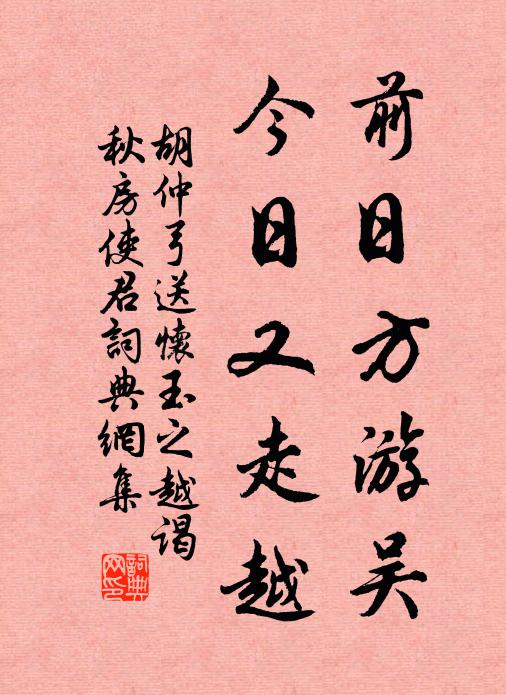 前日方游吴
今日又走越
胡仲弓送懷玉之越谒
秋房使君詞典網集
詞典网印